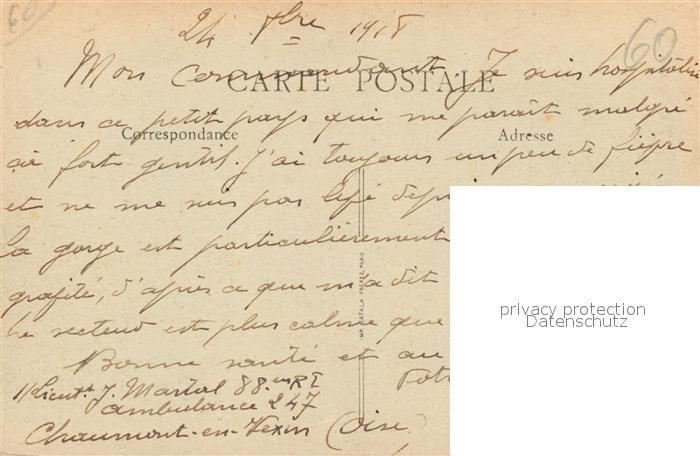 60
24 8bre 1918
60
Mon Commandant. Je suis hospitalisé
CARTE POSTALE
dans ce petit pays qui me paraît malgré
Correspondance
Adresse
fort gentil. J'ai toujours un peu de fièvre
et ne me suis pas levé
la gorge est particulièrement
d'après ce que m'a dit
le secteur est plus calme que
Bonne santé et au
Lieutt J. Martal 88em RI
ambulance 247
Chaumont-en-Vexin (Oise)
IMP. CATALA FRÈRES, PARIS
privacy protection
Datenschutz